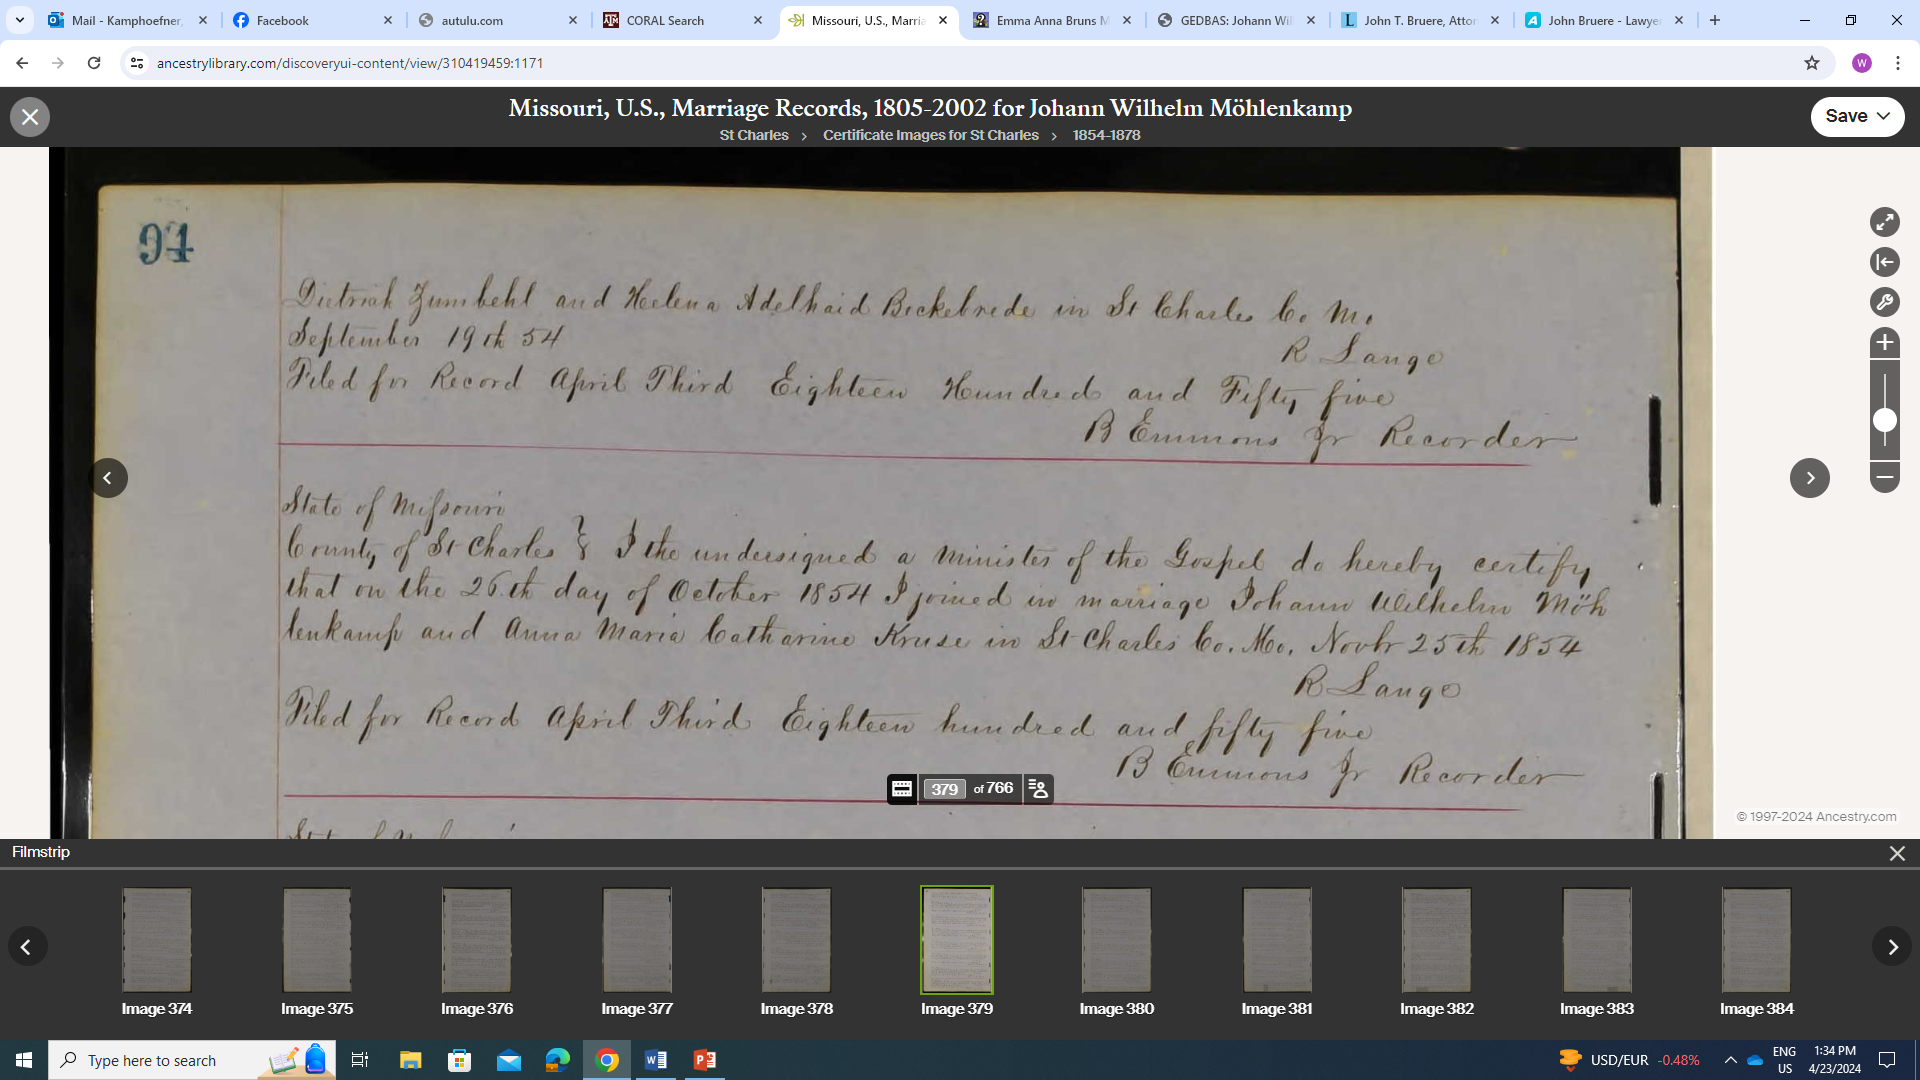 Mail - Kamphoefner,
Facebook
autulu.com
CORAL Search
Missouri, U.S., Marria
Emma Anna Bruns M
GEDBAS: Johann Wil
John T. Bruere, Attor
John Bruere - Lawye
ancestrylibrary.com/discoveryui-content/view/310419459:1171
W
Missouri, U.S., Marriage Records, 1805-2002 for Johann Wilhelm Möhlenkamp
St Charles > Certificate Images for St Charles > 1854-1878
Save
94
Dietrich Zumbehl and Helena Adelhaid Beckebrede in St Charles Co. Mo.
September 19th 54
R Lange
Filed for Record April Third Eighteen Hundred and Fifty five
B Emmons Jr Recorder
State of Missouri
County of St Charles } I the undersigned a minister of the Gospel do hereby certify
that on the 26th day of October 1854 I joined in marriage Johann Wilhelm Möh
lenkamp and Anna Maria Catharine Kruse in St Charles Co. Mo. Novbr 25th 1854
R Lange
Filed for Record April Third Eighteen hundred and fifty five
B Emmons Jr Recorder
379 of 766
© 1997-2024 Ancestry.com
Filmstrip
Image 374
Image 375
Image 376
Image 377
Image 378
Image 379
Image 380
Image 381
Image 382
Image 383
Image 384
Type here to search
USD/EUR -0.48%
ENG
US
1:34 PM
4/23/2024